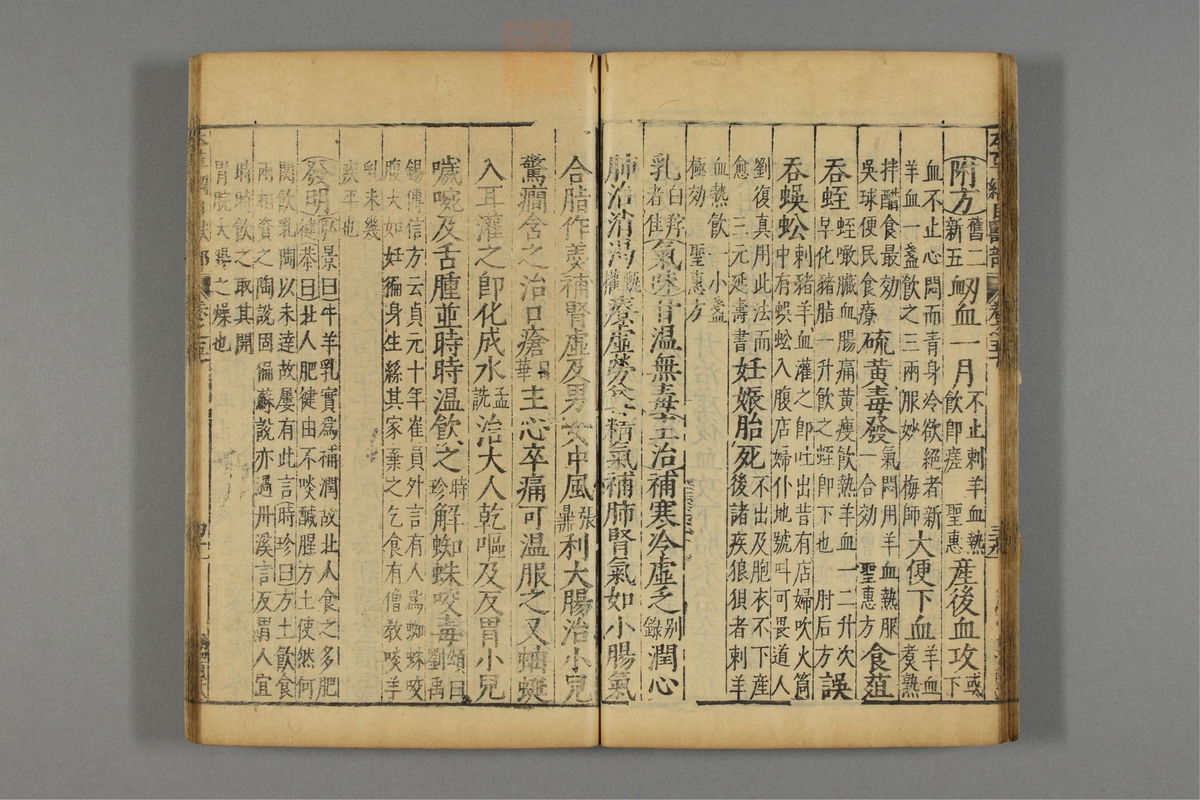 附方舊二新五衄血一月不止刺羊血熱飲即瘥 聖惠 產後血攻或下
血不止心悶面青身冷欲絕者新羊血一盞飲之三兩服妙 梅師 大便下血羊血煮熟
拌醋食最効 吳球便民食療 硫黃毒發氣悶用羊血熱服一合効 聖惠方 食菹
吞蛭蛭啖臟血腸痛黃瘦飲熱羊血一二升次早化豬脂一升飲之蛭即下也 肘后方 誤
吞蜈蚣刺豬羊血灌之即吐出昔有店婦吹火筒中有蜈蚣入腹店婦仆地號叫可畏道人
劉復真用此法而愈 三元延壽書 妊娠胎死不出及胞衣不下產後諸疾狼狽者刺羊
血熱飲一小盞極効 聖惠方
乳白羜者佳氣味甘温無毒主治補寒冷虛乏別錄潤心
肺治消渴甄權療虛勞益精氣補肺腎氣和小腸氣
合脂作羹補腎虛及男女中風張鼎利大腸治小兒
驚癇含之治口瘡日華主心卒痛可温服之又蚰蜒
入耳灌之即化成水孟詵治大人乾嘔及反胃小兒
噦啘及舌腫並時時温飲之時珍解蜘蛛咬毒頌曰劉禹
錫傳信方云貞元十年崔員外言有人為蜘蛛咬腹大如妊徧身生絲其家棄之乞食有僧教啖羊
乳未幾疾平也
發明弘景曰牛羊乳實為補潤故北人食之多肥健恭曰北人肥健由不啖鹹腥方土使然何
關飲乳陶以未達故屢有此言時珍曰方土飲食兩相資之陶說固偏蘇說亦過丹溪言反胃人宜
時時飲之取其開胃脘大腸之燥也